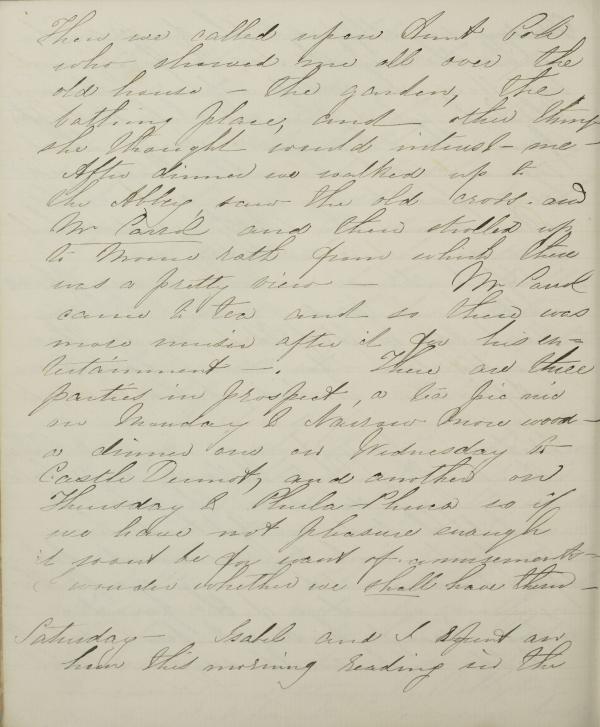 Then we called upon Aunt Bob
who showed me all over the
old house — the garden, the
bathing place, and other things
she thought would interest me —
After dinner we walked up to
the Abbey, saw the old cross. and
Mr Carrol and then strolled up
to Moone rath from which there
was a pretty view — Mr Carrol
came to tea and so there was
more music after it for his en=
tertainment —. There are three
parties in prospect, a tea pic nic
on Monday to Narrow more wood —
a dinner one on Wednesday to
Castle Dermot, and another on
Thursday to Phula Phuca so if
we have not pleasure enough
it wont be for want of amusements —
I wonder whether we shall have them —
Saturday — Isabel and I spent an
hour this morning reading in the